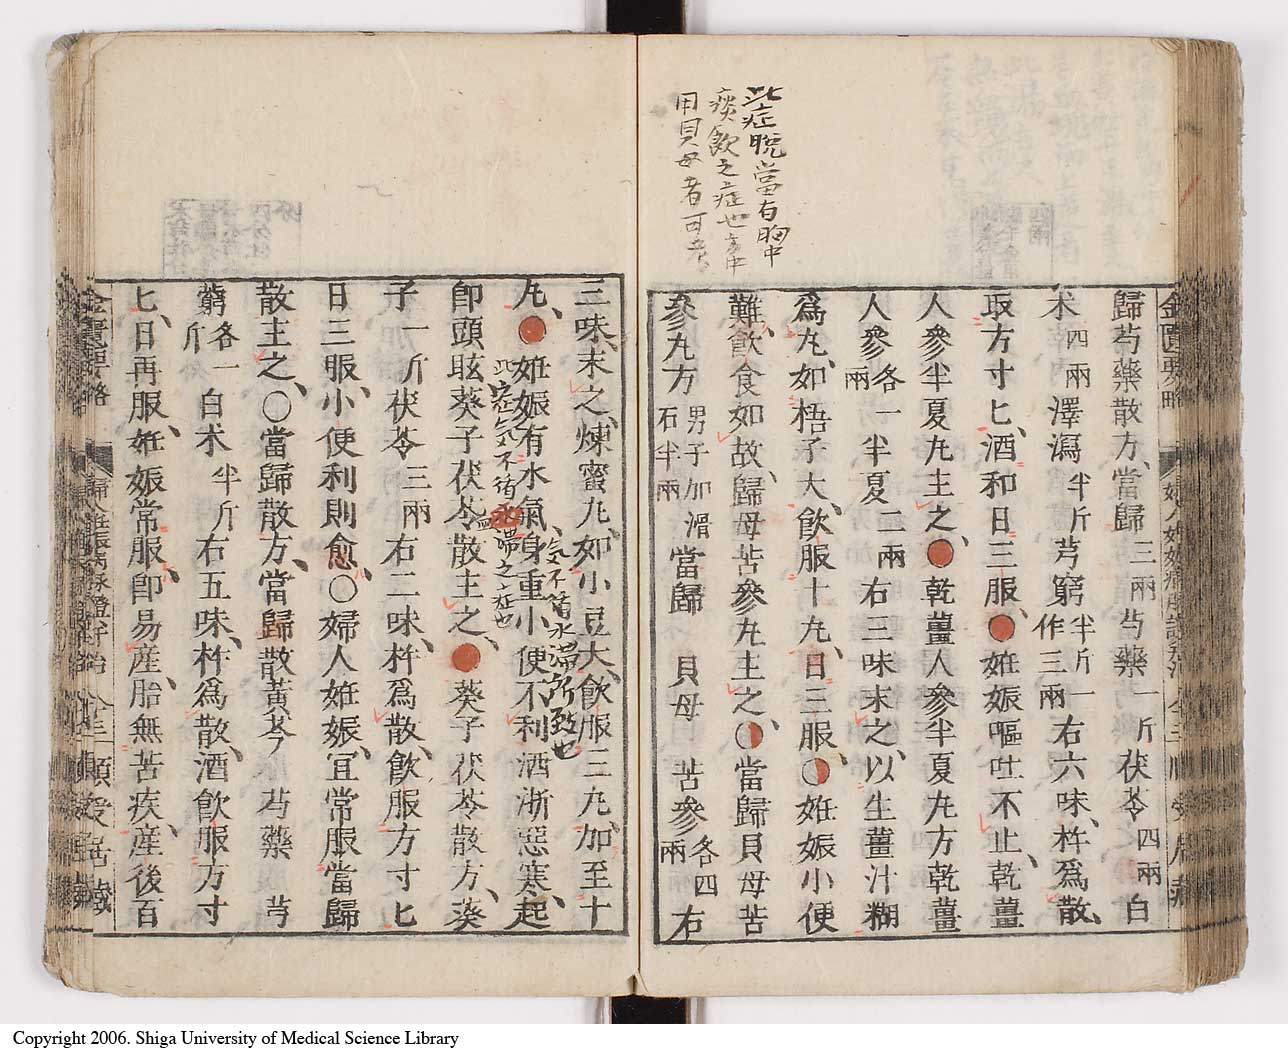 此症脫當有胸中
痰飲之症也方中
用貝母者可考
歸芍藥散方、當歸三兩芍藥一斤茯苓四兩白
朮四兩澤瀉半斤芎窮半斤一作三兩右六味、杵爲散、
取方寸匕、酒和日三服、●姙娠嘔吐不止、乾薑
人參半夏丸主之、●乾薑人參半夏丸方乾薑
人參各一兩半夏二兩右三味末之、以生薑汁糊
爲丸、如梧子大、飲服十丸、日三服、●姙娠小便
難、飲食如故、歸母苦參丸主之、●當歸貝母苦
參丸方男子加滑石半兩當歸貝母苦參各四兩右
三味、末之、煉蜜丸、如小豆大、飲服三丸、加至十
丸、●姙娠有水氣、身重小便不利洒淅惡寒、起
氣不循水滯所致也
此症氣不循水滯之症也
卽頭眩葵子茯苓散主之、●葵子茯苓散方、葵
子一斤茯苓三兩右二味、杵爲散、飲服方寸匕
日三服、小便利則愈、○婦人姙娠、宜常服當歸
散主之、○當歸散方、當歸散黃芩芍藥芎
窮各一斤白朮半斤右五味、杵爲散、酒飲服方寸
匕、日再服、姙娠常服卽易産、胎無苦疾、産後百
金匱要略
Copyright 2006. Shiga University of Medical Science Library